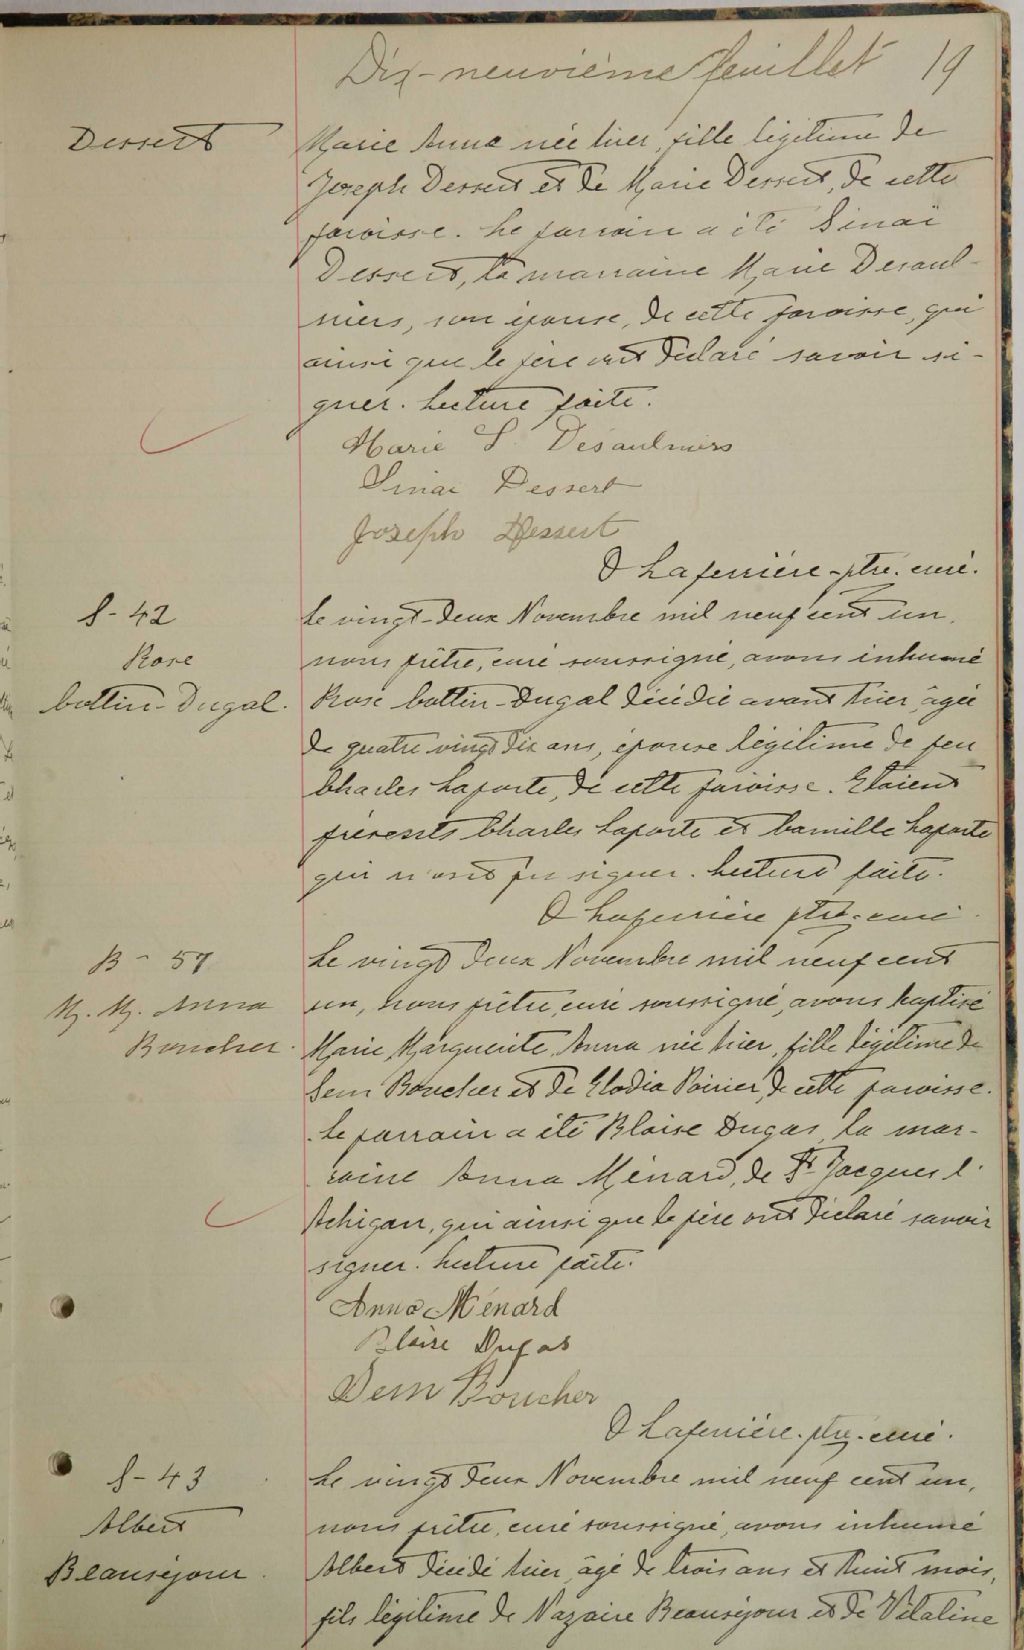 Dix-neuvième feuillet 19
Dessert
Marie Anna née hier, fille légitime de
Joseph Dessert et de Marie Dessert, de cette
paroisse. Le parrain a été Sinaï
Dessert, la marraine Marie Desaul-
niers, son épouse, de cette paroisse, qui
ainsi que le père ont déclaré savoir si-
gner. Lecture faite.
Marie S. Désaulniers
Sinai Dessert
Joseph Dessert
O Laferrière - ptre. curé.
S-42
Rose
Cottin-Dugal.
Le vingt-deux Novembre mil neuf cent un,
nous prêtre, curé soussigné, avons inhumé
Rose Cottin-Dugal décédée avant hier, âgée
de quatre vingt dix ans, épouse légitime de feu
Charles Laporte, de cette paroisse. Etaient
présents Charles Laporte et Camille Laporte
qui n'ont pu signer. Lecture faite.
O Laferrière ptre-curé
B - 57
M. M. Anna
Boucher.
Le vingt deux Novembre mil neuf cent
un, nous prêtre, curé soussigné, avons baptisé
Marie Marguerite Anna née hier, fille légitime de
Sem Boucher et de Elodia Poirier, de cette paroisse.
Le parrain a été Blaise Dugas, la mar-
raine Anna Ménard, de St Jacques l'
Achigan, qui ainsi que le père ont déclaré savoir
signer. Lecture faite.
Anna Ménard
Blaise Dugas
Sem Boucher
O Laferrière. ptre-curé.
S-43
Albert
Beauséjour.
Le vingt deux Novembre mil neuf cent un,
nous prêtre, curé soussigné, avons inhumé
Albert décédé hier, âgé de trois ans et huit mois,
fils légitime de Nazaire Beauséjour et de Vitaline